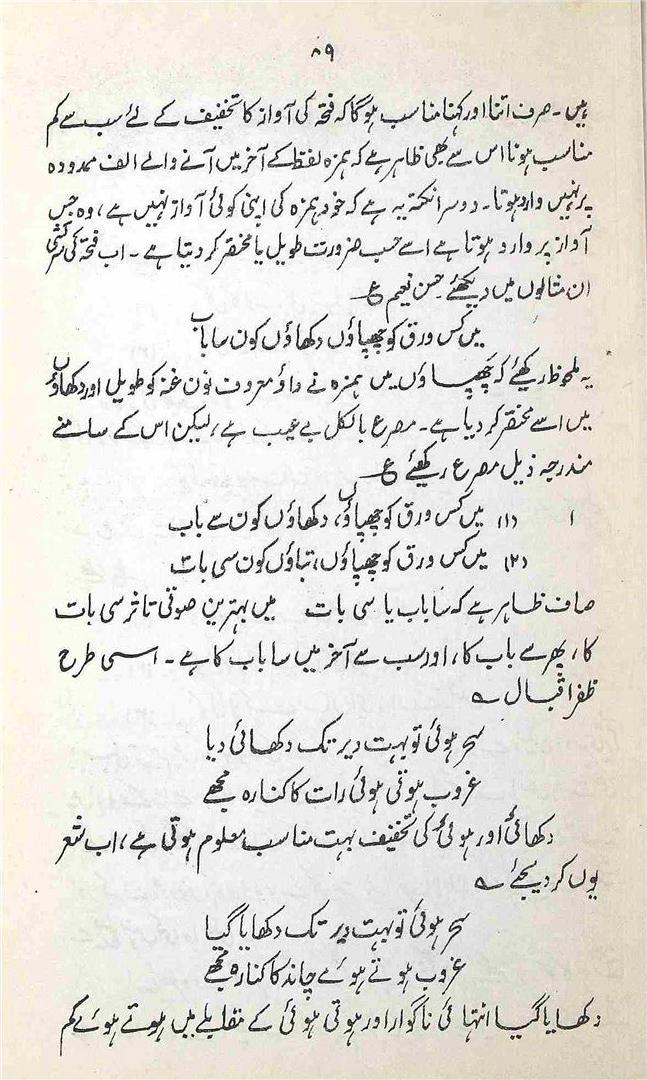 ۸۹
ہیں۔ صرف اتنا اور کہنا مناسب ہوگا کہ فتحہ کی آواز کا تخفیف کے لئے سب سے کم
مناسب ہونا اس سے بھی ظاہر ہے کہ ہمزہ لفظ کے آخر میں آنے والے الف ممدودہ
پر نہیں وارد ہوتا۔ دوسرا نکتہ یہ ہے کہ خود ہمزہ کی اپنی کوئی آواز نہیں ہے، وہ جس
آواز پر وارد ہوتا ہے اسے حسب ضرورت طویل یا مختصر کر دیتا ہے۔ اب فتحہ کی سرکشی
ان مثالوں میں دیکھئے۔ حسن نعیم ع
میں کس ورق کو چھپاؤں دکھاؤں کون سا باب
یہ ملحوظ رکھئے کہ چھپاؤں میں ہمزہ نے واؤ معروف نون غنہ کو طویل اور دکھاؤں
میں اسے مختصر کر دیا ہے۔ مصرع بالکل بے عیب ہے، لیکن اس کے سامنے
مندرجہ ذیل مصرع رکھئے ع
۱ (۱) میں کس ورق کو چھپاؤں، دکھاؤں کون سے باب
(۲) میں کس ورق کو چھپاؤں، بتاؤں کون سی بات
صاف ظاہر ہے کہ سا باب یا سی بات میں بہترین صوتی تاثر سی بات
کا، پھر سے باب کا، اور سب سے آخر میں سا باب کا ہے۔ اسی طرح
ظفر اقبال ؎
سحر ہوئی تو بہت دیر تک دکھائی دیا
غروب ہوتی ہوئی رات کا کنارہ مجھے
دکھائی اور ہوئی کی تخفیف بہت مناسب معلوم ہوتی ہے، اب شعر
یوں کر دیجئے ؎
سحر ہوئی تو بہت دیر تک دکھایا گیا
غروب ہوتے ہوئے چاند کا کنارہ مجھے
دکھایا گیا انتہائی ناگوار اور ہوتی ہوئی کے مقابلے میں ہوتے ہوئے کم